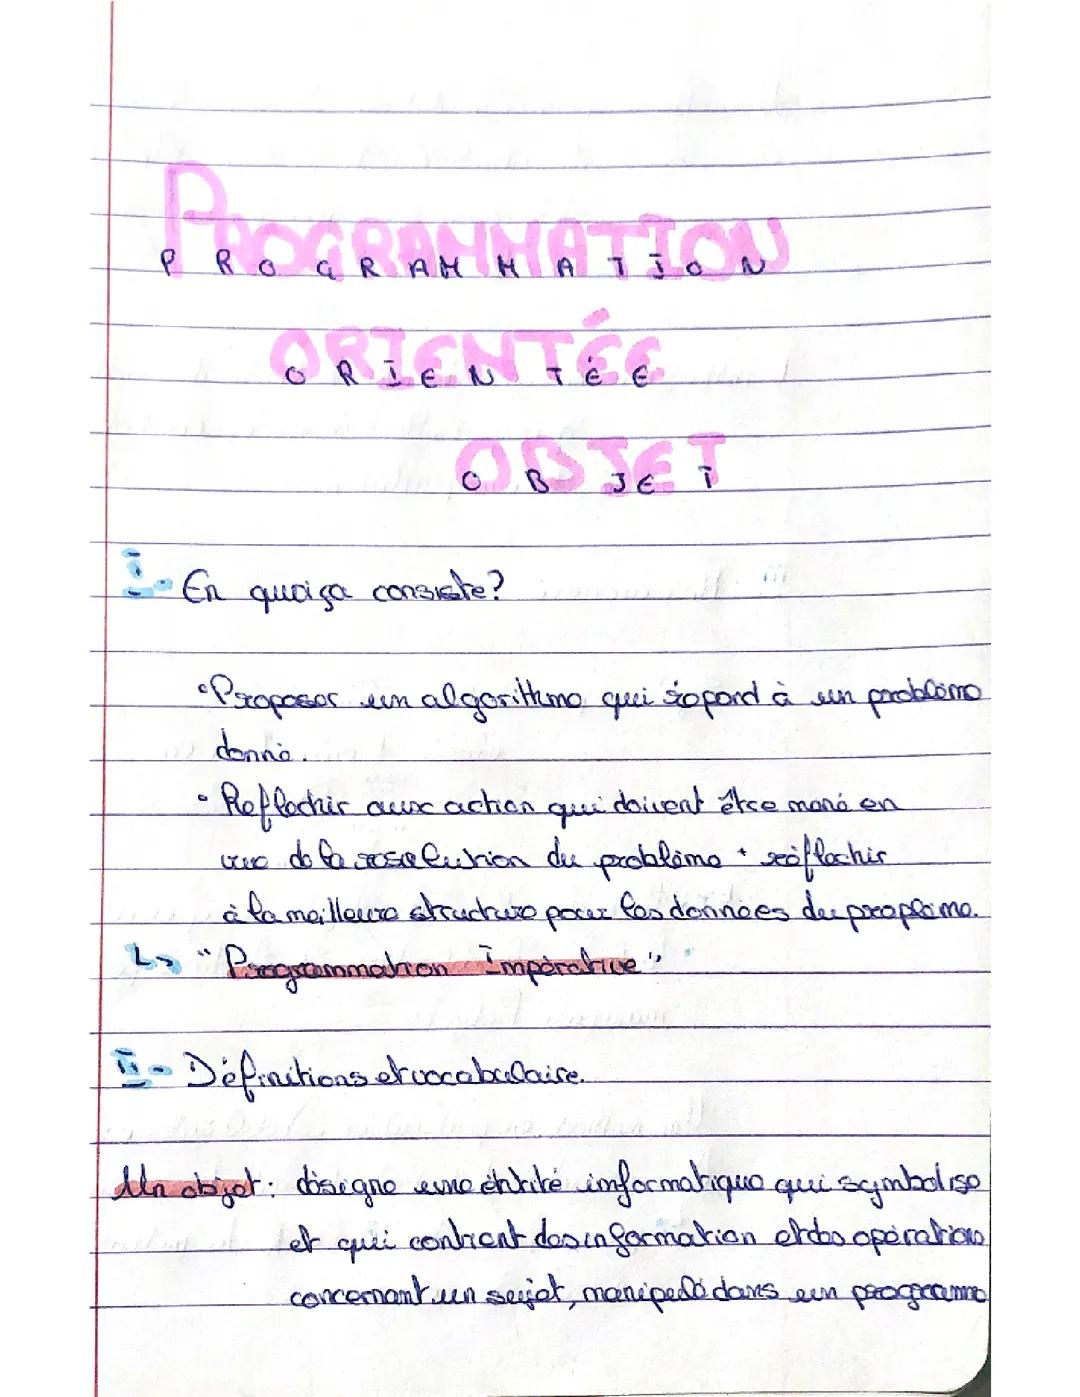 PROGRAMMATION
PROGRAMMATION
ORIENTÉE
ORIENTÉE
OBJET
OBJET
I - En quoi ça consiste?
• Proposer un algorithme qui répond à un problème
donné.
• Reflechir aux action qui doivent être mené en
vue de la resolution du problème + réflechir
à la meilleure structure pour les données du proplème.
↳ "Programmation Impérative"
II - Définitions et vocabulaire.
Un objet : désigne une entité informatique qui symbolise
et qui contient des information et des opérations
concernant un sujet, manipulé dans un programme